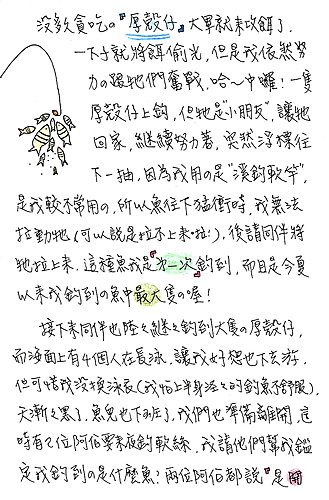 沒多久貪吃的『厚殼仔』大軍就來攻餌了,
一下子就將餌偷光,但是我依然努
力的跟牠們奮戰,哈~中囉!一隻
厚殼仔上鉤,但牠是"小朋友",讓牠
回家,繼續努力著,突然浮標往
下一抽,因為我用的是"溪釣軟竿",
是我較不常用的,所以魚往下猛衝時,我無法
拉動牠(可以說是拉不上來啦!),後請同伴將
牠拉上來.這種魚我是『第一次』釣到,而且是今夏
以來我釣到的魚中最大隻的喔!
接下來同伴也陸々續々釣到大隻の厚殼仔,
而海面上有4個人在長泳,讓我好想也下去游,
但可惜我沒換泳衣(我怕上半身溼々的釣魚不舒服),
天漸々黑了,魚兒也下班了,我們也準備離開,這
時有2位阿伯要來夜釣軟絲,我請他們幫我鑑
定我釣到的是什麼魚?兩位阿伯都說『是開